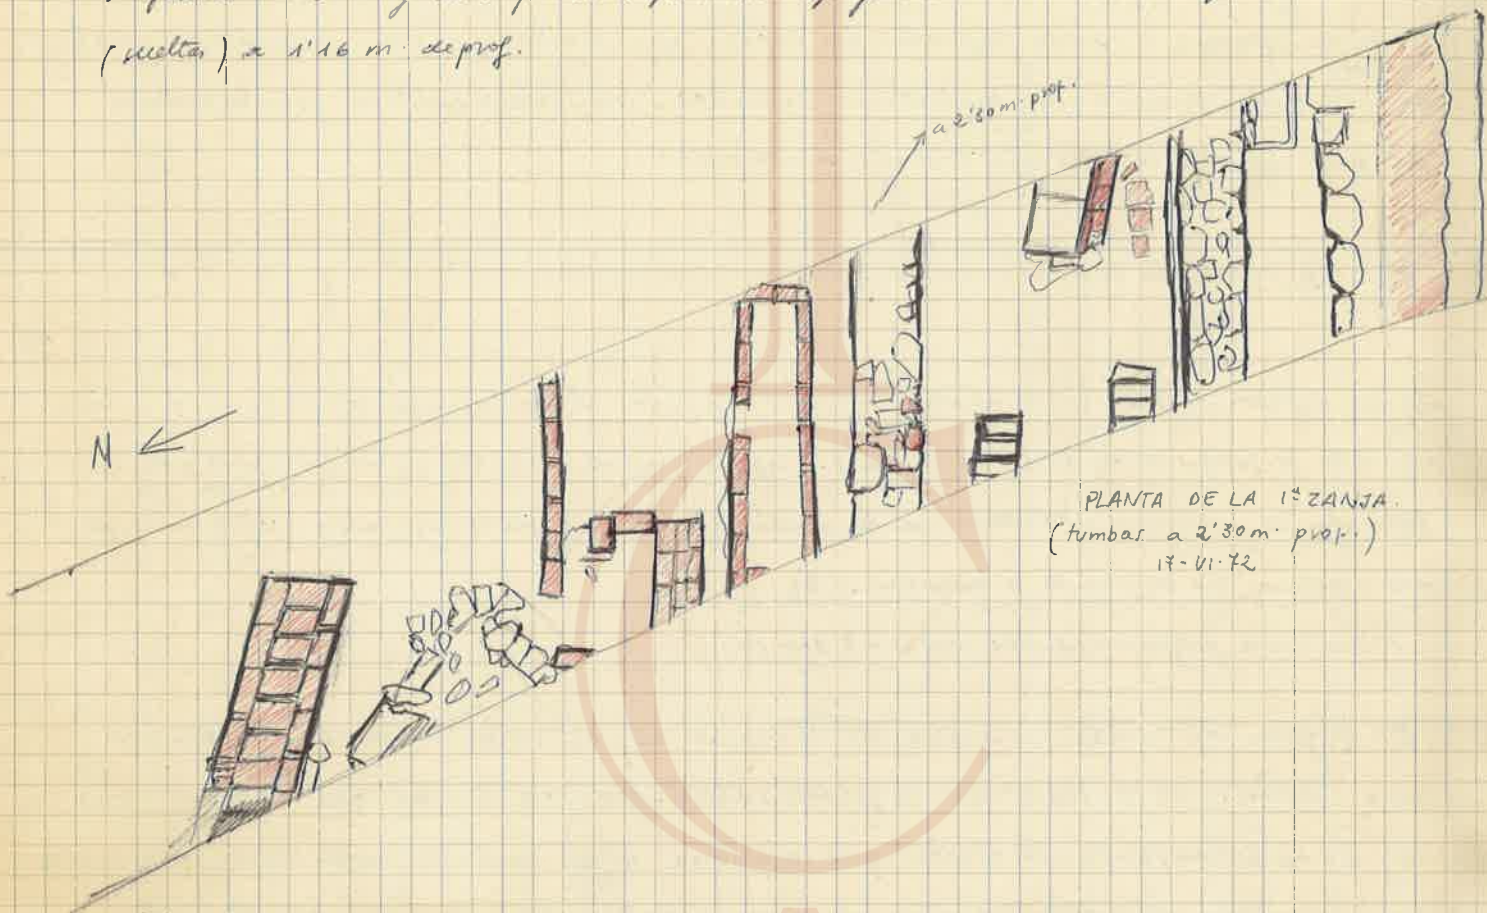 (sueltas) a 1'16 m. de prof.
a 2'30 m. prof.
N
PLANTA DE LA 1ª ZANJA.
(tumbas a 2'30 m. prof.)
17-VI-72